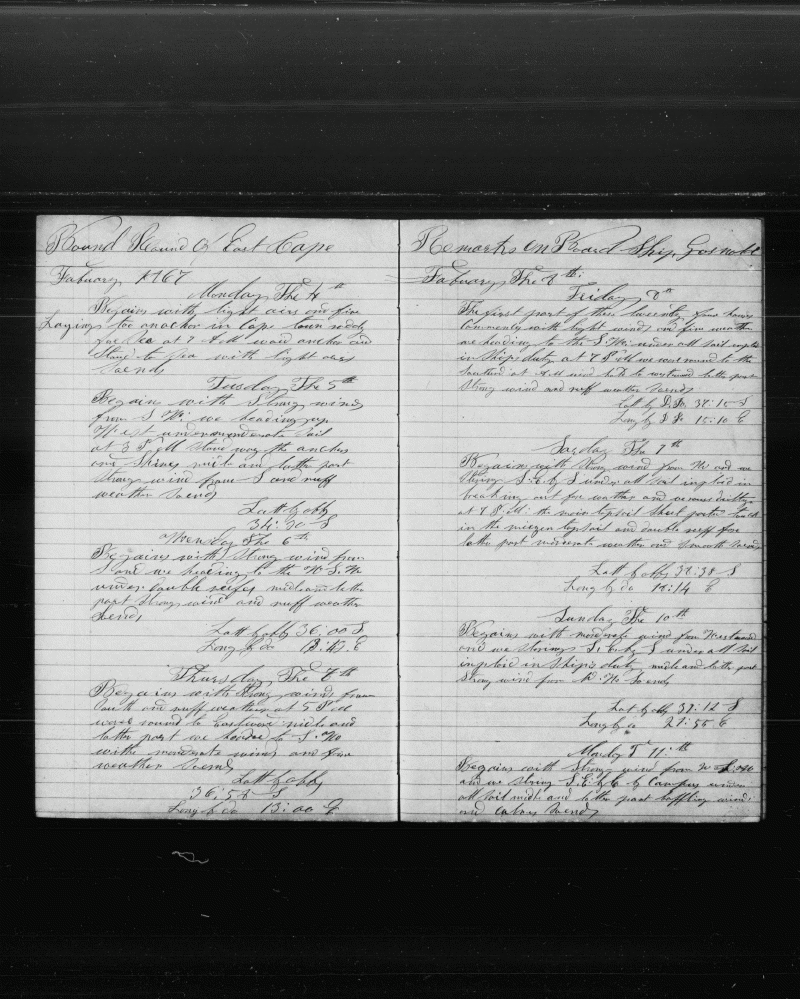 Bound Round Of East Cape
Fabuary 1867
Monday The 4th
Begains with light airs and fine
Laying too anchor in Cape town ready
for Sea at 8 A.M. and
Stand to Sea with light airs
So ends
Tuesday The 5th
Begain with Strong winds
from S W. we heading up
West under moderate Sail
at 3 P.M Stowe way the anchor
and Shines latter part
Strong wind from S and ruff
weather So ends
Latt by obb
34:30 S
Wensday The 6th
Begains with Strong wind from
S and we heading to the W.S.W
under double reefes midle and latter
part Strong wind and ruff weather
So ends
Latt by obb 36:00 S
Long by do E
Thursday The 7th
Begains with Strong winds from
South and ruff weather at 5 P.M
ware round to Eastward midle and
latter part we headed to S.W
with moderate winds and fine
weather So ends
Latt by obb
36:58 S
Long by do 13:00 E
Remarks on Board Ship Gosnold
Fabuary The 8th:
Friday 8th
The first part of these twenty four hours
Commences with light winds and fine weather
we heading to the S.W. under all Sail imploid
in Ships duty at 7 P.M we ware round to the
Southard at A.M to westward latter part
Strong wind and ruff weather So ends
Latt by D.R. 37:10 S
Long by D R 15:10 E
Saday The 9th
Begains with Strong wind from W and we
Stearing S.E by S under all Sail imploid in
breaking out for watter and
at 7 P.M. the main topsail Sheet parted took
in the mizzen topsail and double reeff fore
latter part moderate weather and Smooth So ends
Latt by obb 37:38 S
Long by do 18:14 E
Sunday The 10th
Begains with moderate wind from Westward
and we Stearing S.E by S under all Sail
imploid in Ships duty midle and latter part
Strong wind from N.W So ends
Lat by obb 37:12 S
Long by do 21:55 E
Monday T 11th
Begains with Strong wind from
and we Stearing S.E by E by Compass under
all Sail midle and latter part baffling winds
and Calms So ends